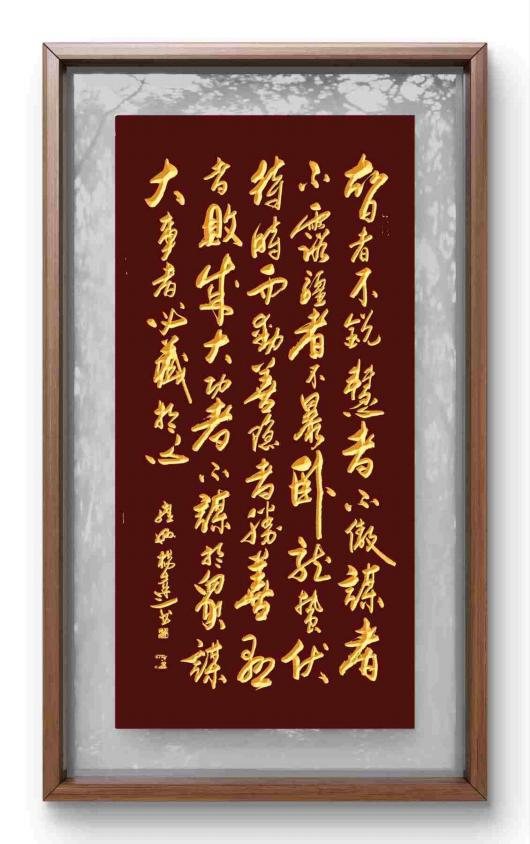 智者不銳慧者不傲謀者
不露強者不暴卧龍蟄伏
待時而動善隱者勝善露
者敗成大功者不謀於眾謀
大事者必藏於心